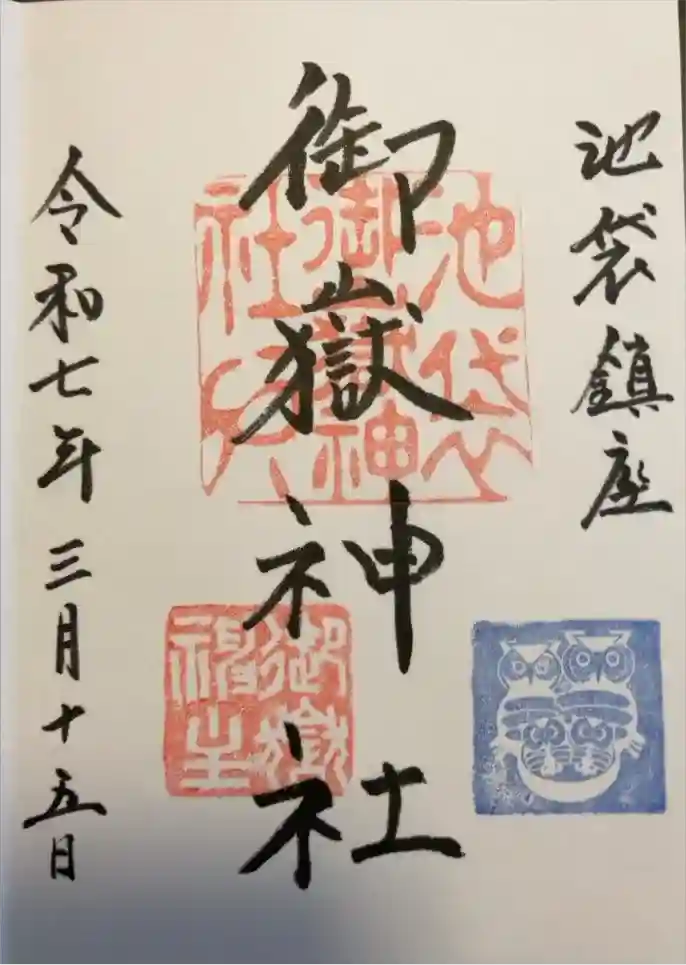 池袋鎮座
御嶽神社
令和七年三月十五日
池袋
御嶽神
社
御嶽